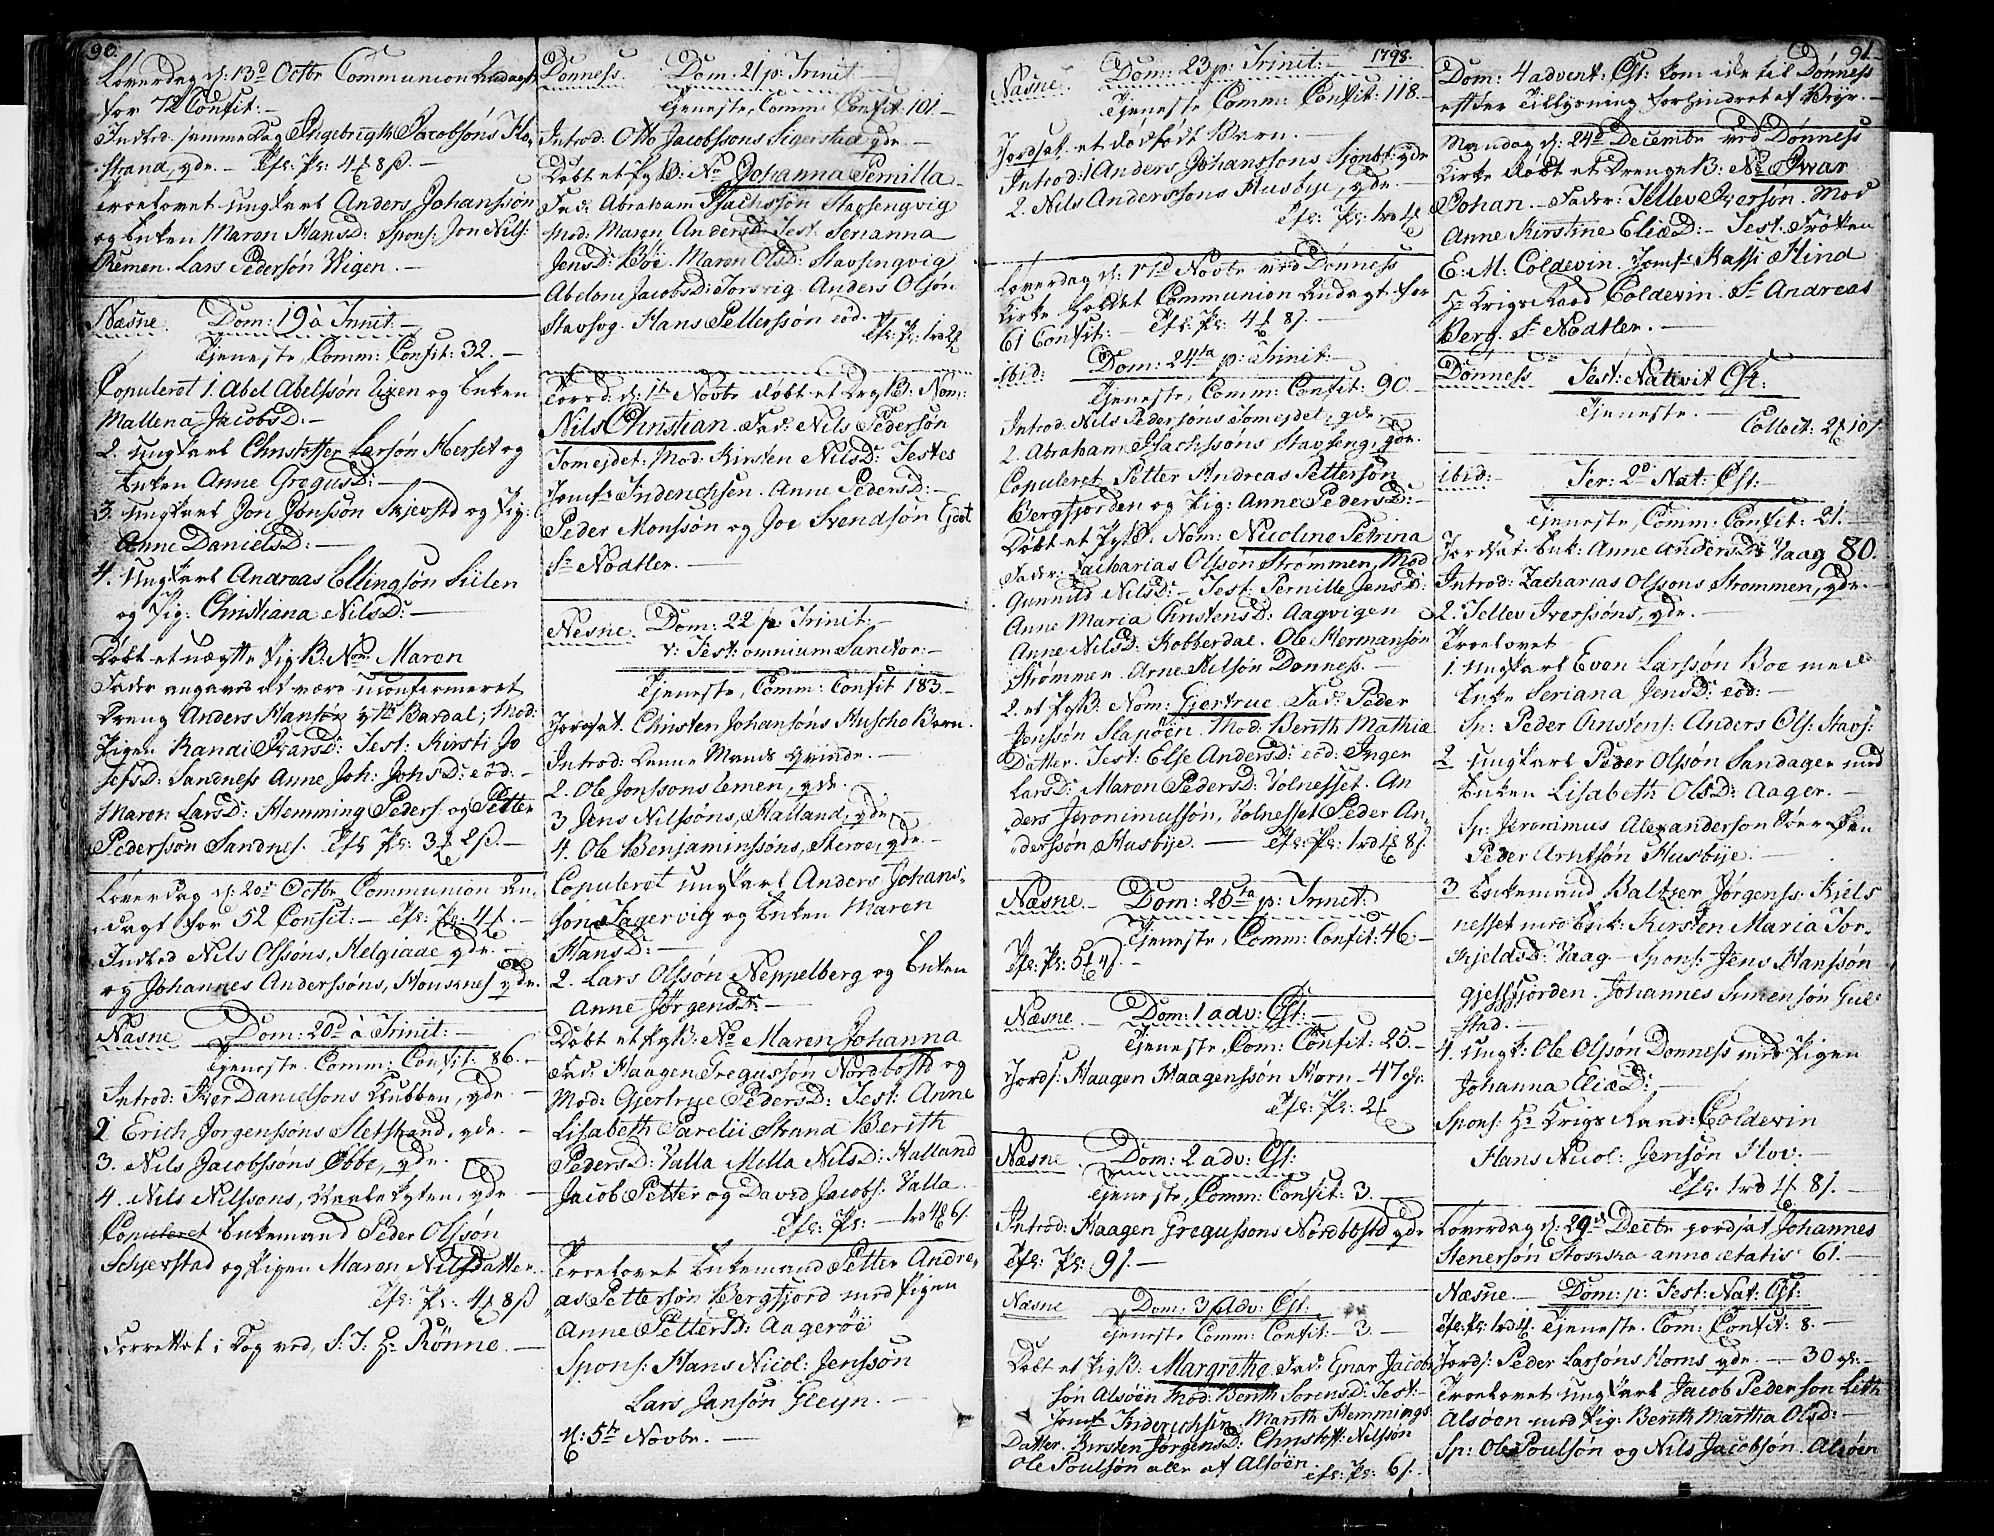 90.
Löverdag d: 13d Octbr Communion Andagt
for 72 Confit: —
Indled: samme Dag Engebrigth Jacobsöns
strand, qde. — Efr: Pr: 4 8 ß —
Troelovet Ungkarl Anders Johansson
og Enken Maren HansD: Spons: Jon Nils:
Remen. Lars Pedersön Wigen. —
Næsne. Dom: 19 à Trinit: —
Tjeneste, Comm: Confit: 32. —
Copuleret 1. Abel Abelssön og Enken
Mallena JacobsD: —
2. Ungkarl Christoffer Larsön Herset og
Enken Anne GregusD: —
3. Ungkarl Jon Jonssön Skjevstd og Pig:
Anne DanielsD: —
4. Ungkarl Andreas Ellingsön
og Pig: Christiana NilsD: —
Döbt et uægte Pig B: Nom: Maren
Fader angaves at være uconfirmeret
Dreng Anders Hansön Bardal; Mod:
Pigen Randi IvarsD: Test: Kirsti Jo
sefsD: Sandness Anne Joh: JohsD: eod: —
Maren LarsD: Hemming Peders: og Petter
Pederssön Sandnes. Efr Pr: 3 2 ß. —
Löverdag d: 20d Octbr Communion An-
dagt for 52 Confit: — Efr: Pr: 4 —
Indled Nils Olssöns, Helgiaae qde. —
og Johannes Anderssöns, Honsenes qde.
Næsne Dom: 20d à Trinit: —
Tjeneste. Comm: Confit: 86. —
Introd: Iver Danielsöns Klubben, qde. —
2 Erich Jorgenssöns Sletstrand, qde. —
3. Nils Jacobssöns Ebbe, qde. —
4. Nils Nilssons, qde —
Copuleret Enkemand Peder Olssön
Schjevstad og Pigen Maren Nilsdatter.
Efr: Pr: 4 8 ß
Forrettet i Dag ved, S: T. Hr Rönne. —
Dönness. Dom: 21 p: Trinit —
Tjeneste, Comm: Confit: 101. —
Introd: Otto Jacobssons Sigerstad qde. —
Döbt et Pig B: No Johanna Pernilla
Fad: Abraham Isachssön Stavsengvig
Mod: Maren AndersD: Test: Jenanna
JensD: Böe. Maren OlsD: Stavsengvig
Abelone JacobsD: Torsvig. Anders Olsön
Stavsvg. Hans Petterssön eod.
Torsd: d: 1te Novbr döbt et B: Nom:
Nils Christian. Fad: Nils Pedersön
Tomejdet: Mod: Kirsten NilsD: Testes
Jomfr Inderichsen. Anne PedersD: —
Peder Monssön og Joe Svendsön
Sr Nodtler. —
Nesne. Dom: 22 p: Trinit: —
v: Fest: omnium Sanctor: —
Tjeneste, Comm: Confit 183. —
Jordsat. Christen Johansöns Huscho Barn.
Introd: Denne Mands Qvinde. —
2. Ole Jonssons Lemen, qde.
3 Jens Nilssöns, Halland, qde
4. Ole Benjaminssöns, Steroe, qde. —
Copuleret Ungkarl Anders Johans-
sön Fagervig og Enken Maren
HansD: —
2. Lars Olssön Neppelberg og Enken
Anne JörgensD: —
Döbt et Pig B: No Maren Johanna
Fad: Haagen Gregussön Nordbostd og
Mod: Gjertrue PedersD: Test: Anne
Lisabeth Parelii Strand Berith
PedersD: Valla Mella NilsD: Halland
Jacob Petter og David Jacobs: Valla.
Efr: Pr: —
Troelovet Enkemand Petter Andre-
as Pettersön Bergfjord med Pigen
Anne PettersD: Aageröe
Spons: Hans Nicol: Jenssön
Lars Jansön Gleyn. —
d: 5te Novbr. —
1798.
Næsne. Dom: 23 p: Trinit: —
Tjeneste Comm: Confit: 118 —
Jordsat et dödfödt Barn. —
Introd: 1 Anders Johanssons Sjonbt: qde
2. Nils Anderssons Husbye, qde. —
Efr: Pr:
Löverdag d: 17d Novbr ved Dönness
Kirke holdet Communion Andagt for
61 Confit: — Efr: Pr: 4 8 ß. —
ibid: Dom: 24ta p: Trinit: —
Tjeneste, Comm: Confit: 90. —
Introd: Nils Pedersöns Tomejdet, qde —
2. Abraham Isachssöns Stavseng, qde.
Copuleret Petter Andreas Pettersön
Bergfjorden og Pig: Anne PedersD: —
Döbt et Pig B. Nom: Nicoline Petrina
Fader: Zacharias Olsson Strömmen, Mod
Gunnild NilsD: — Test: Pernille JensD:
Anne Maria ChristensD: Aagvigen
Anne NilsD: Kobberdal. Ole Hermansön
Strömmen. Arne Nilsön Dönness. —
2. et Pig B: Nom: Giertrue Fad: Peder
Jenssön Slapöen. Mod: Berith Mathiæ
Datter. Test: Else AndersD: eod: Inger
LarsD: Maren PedersD: Volnesset. An
ders Jeronimussön, Volnesset Peder An-
derssön, Husbye. — Efr: Pr: 1 rd 8 ß.
Næsne — Dom: 25ta p: Trinit:
Tjeneste, Comm: Confit: 46. —
Efr: Pr:
Næsne — Dom: 1 adv: Chr: —
Tjeneste, Com: Confit: 25. —
Jords: Haagen Haagenssön Horn — 47 Ar:
Efr: Pr: 2
Næsne Dom: 2 adv: Chr:
Tjeneste, Comm: Confit: 3. —
Introd: Haagen Gregussons Nordbbstd qde
Efr: Pr: 9 ß. —
Næsne Dom: 3 Adv: Chr:
Tjeneste Comm: Confit — 3. —
Döbt et Pig B: Margrethe Fad: Ejnar Jacob
sön Alsöen Mod: Berith SorensD: Test —
Jomfr Inderichsen. Marith Hemmings
Datter. Kirsten JörgensD: Christoff: Nilssön
Ole Poulsön alle af Alsöen. Efr: Pr: 6 ß.
91.
Dom: 4 advent: Chr: kom ike til Dönness
efter Tillysning forhindret af Veyr. —
Mandag d: 24d Decembr ved Dönness
Kirke döbt et Drenge B: No Iwar
Johan — Fader: Tellev Iversön. Mod
Anne Kirstine EliæD: — Test. Fröken
E: M: Coldevin. Jomfr Kassi Hind
Hr Krigs Raad Coldevin. Sr Andreas
Berg. Sr Nodtler. —
Dönness Fest: Nativit Chr:
Tjeneste. —
Collect:
ibid: — Fer: 2d Nat: Chr: —
Tjeneste, Comm: Confit: 21. —
Jordsat Enk: Anne AndersD: Vaag 80.
Introd: Zacharias Olssons Strömmen, qde.
2. Tellev Iverssöns, qde. —
Troelovet
1. Ungkarl Even Larssön Boe med
Enke Seriana JensD: eod: —
Sp: Peder Christens: Anders Ols: Stavs:
2 Ungkarl Peder Olssön Sandager med
Enken Lisabeth OlsD: Aager. —
Sp: Jeronimus Alexanderson
Peder Arntsön Husbye. —
3 Enkemand Baltzer Jörgenss: Kiels
nesset med Enk: Kirsten Maria Tor-
kjeldsD: Vaag — Spons: Jens Hanssön
Gjessfjorden. Johannes Simensön Gul
stad. —
4. Ungk: Ole Olssön Dönness med Pigen
Johanna EliæD: —
Spons: Hr Krigs Raad: Coldevin
Hans Nicol: Jensön Hov. —
Efr: 1 rd 8 ß. —
Löverdag d: 29d Decbr jordsat Johannes
Stenersön anno ætatis 61. —
Næsne. — Dom: p: Fest: Nat: Chr:
Efr: Pr: Tjeneste. Com: Confit: 8. —
Jords: Peder Larsöns Horns qde. — 30 Ar: —
Troelovet Ungkarl Jacob Pederson
Alsöen med Pig: Berith Martha OlsD: —
Sp: Ole Poulsön og Nils Jacobsön. Alsöen